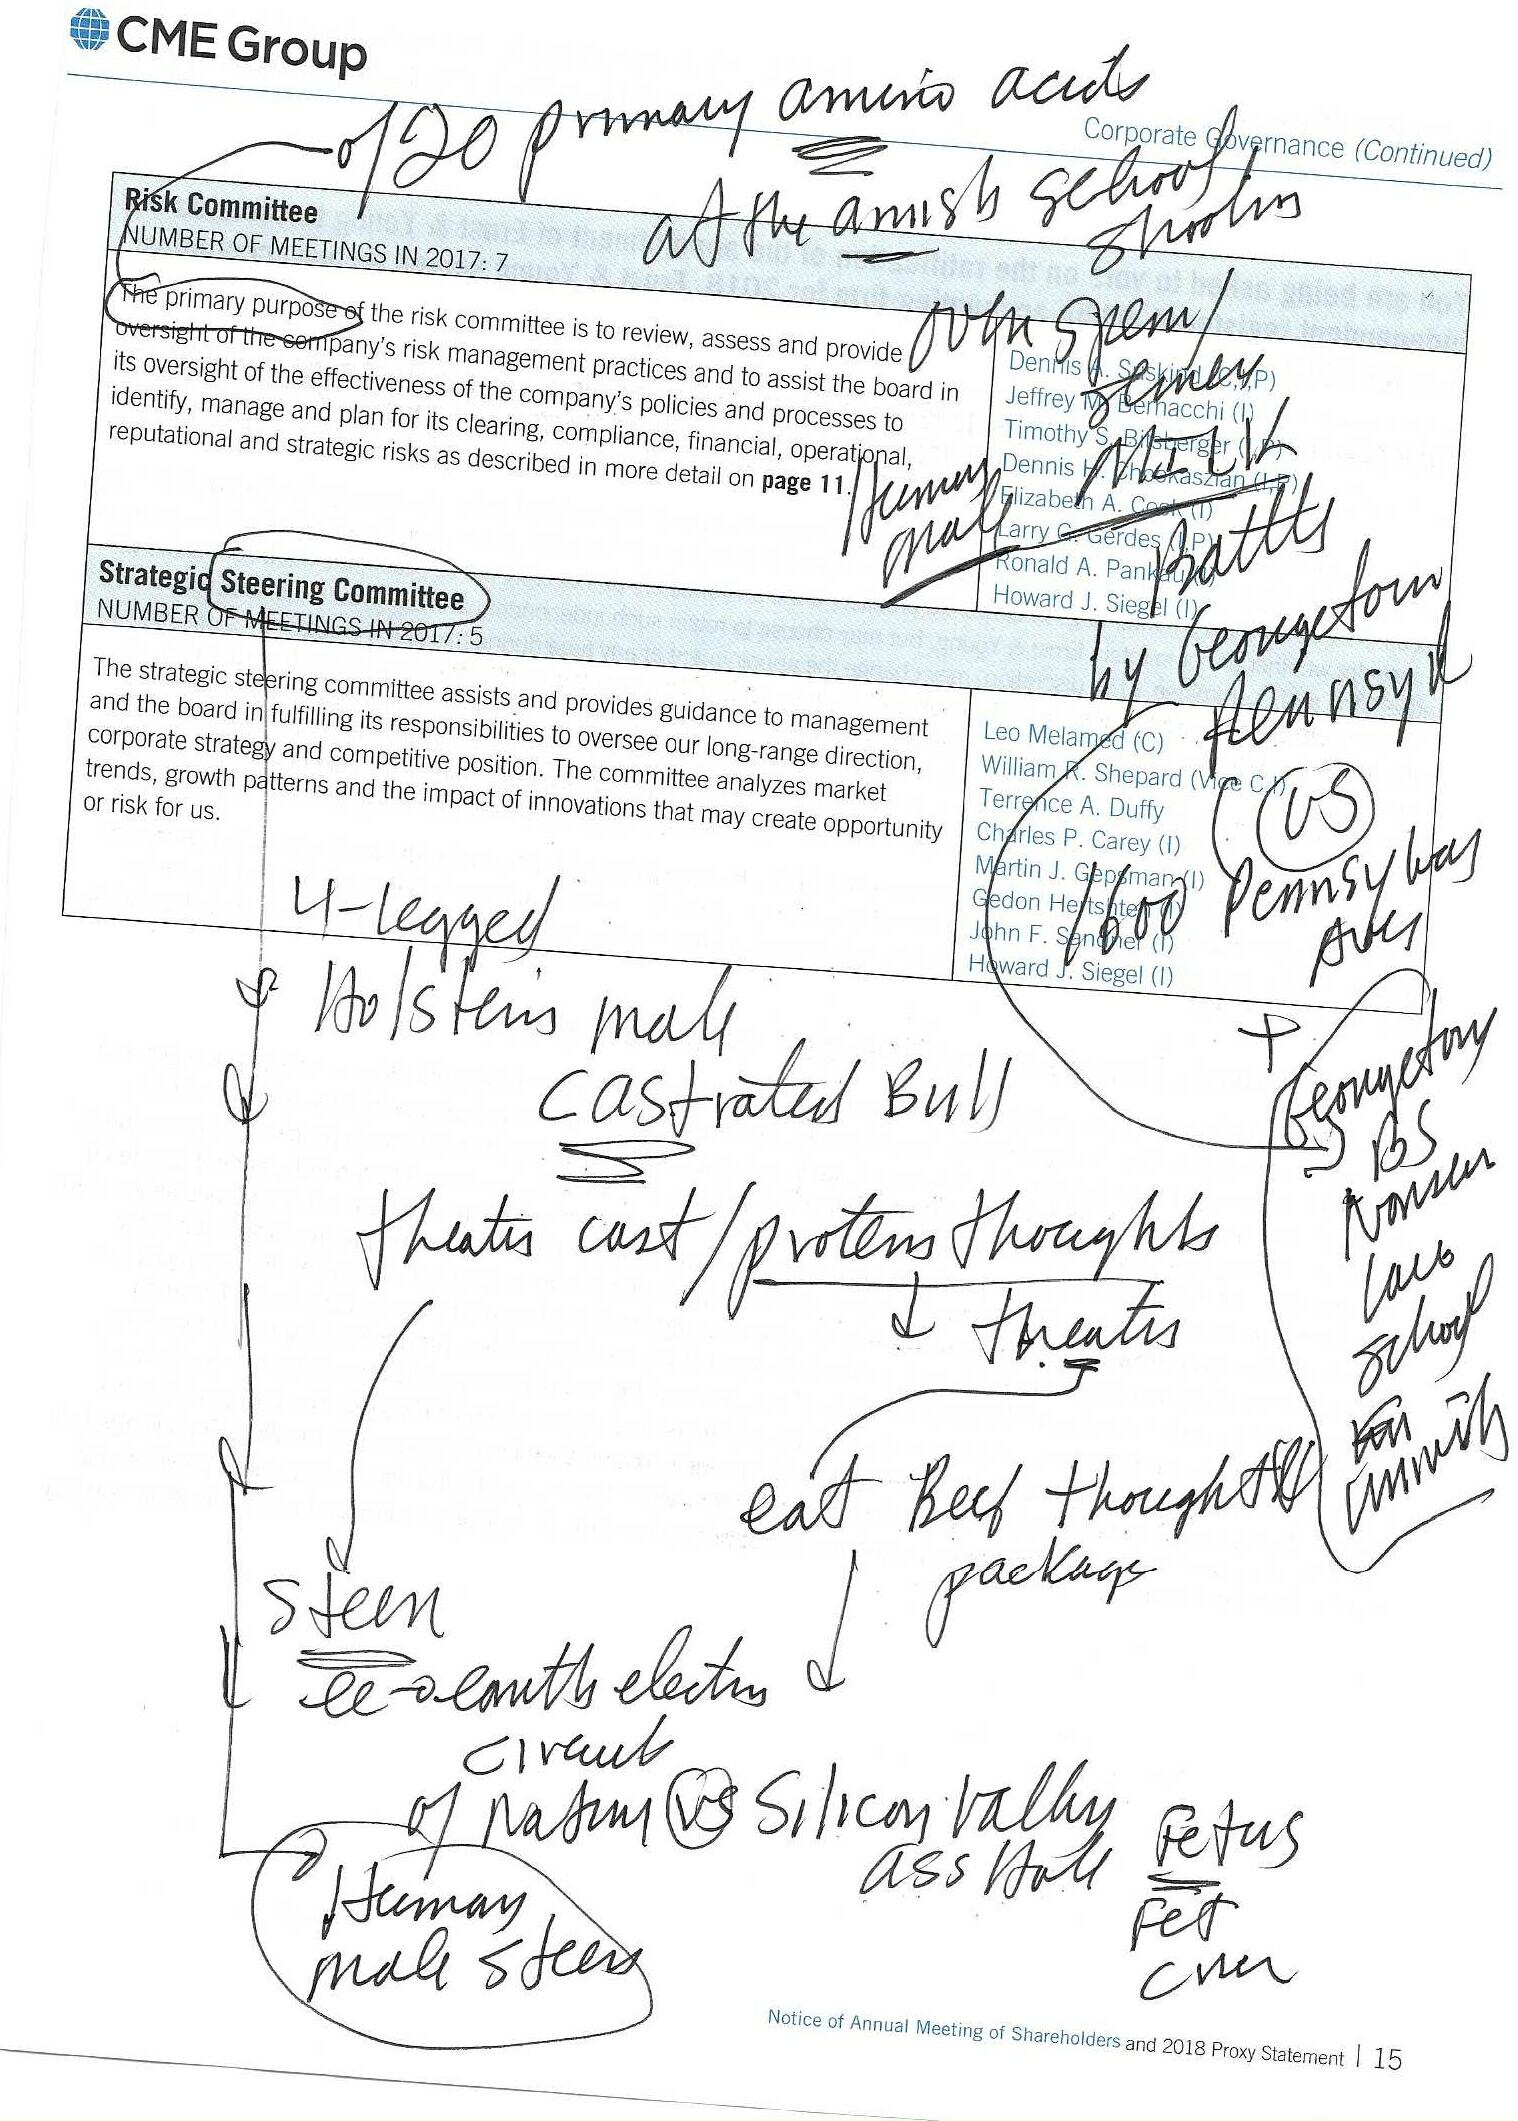 CME Group
of 20 primary amino acids
Corporate Governance (Continued)
at the amish school
Risk Committee
NUMBER OF MEETINGS IN 2017: 7
The primary purpose of the risk committee is to review, assess and provide
oversight of the company's risk management practices and to assist the board in
its oversight of the effectiveness of the company's policies and processes to
identify, manage and plan for its clearing, compliance, financial, operational,
reputational and strategic risks as described in more detail on page 11.
over sperm/
semen
MILK
Human
male
Battles
by Georgetown
Dennis A. Suskind (C,I,P)
Jeffrey M. Bernacchi (I)
Timothy S. Bitsberger (I,P)
Dennis H. Chookaszian (I,P)
Elizabeth A. Cook (I)
Larry G. Gerdes (I,P)
Ronald A. Pankau
Howard J. Siegel (I)
Strategic Steering Committee
NUMBER OF MEETINGS IN 2017: 5
The strategic steering committee assists and provides guidance to management
and the board in fulfilling its responsibilities to oversee our long-range direction,
corporate strategy and competitive position. The committee analyzes market
trends, growth patterns and the impact of innovations that may create opportunity
or risk for us.
Leo Melamed (C)
William R. Shepard (Vice C,I)
Terrence A. Duffy
Charles P. Carey (I)
Martin J. Gepsman (I)
Gedon Hertshten (I)
John F. Sandner (I)
Howard J. Siegel (I)
VS
1600
+
Georgetown
BS
law
school
4-legged
Holstein male
castrated Bull
theater cast/protein thoughts
theater
eat Beef thought
package
steer
ee-earth electron
circuit
of nature VS Silicon Valley
ass Hole
Fetus
Fet
Human
male steer
Notice of Annual Meeting of Shareholders and 2018 Proxy Statement | 15